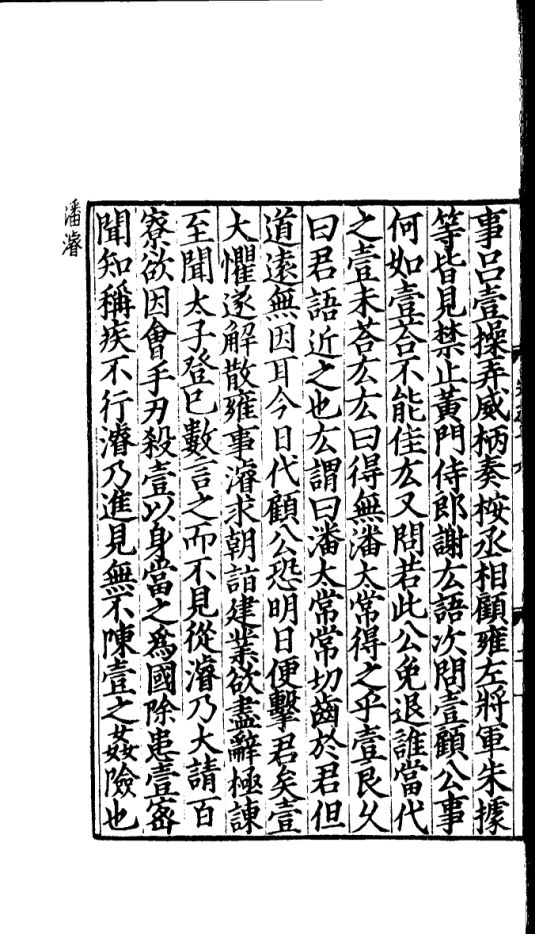 事吕壹操弄威柄奏桉丞相顧雍左將軍朱據
等皆見禁止黃門侍郎謝厷語次問壹顧公事
何如壹荅不能佳厷又問若此公免退誰當代
之壹未荅厷厷曰得無潘太常得之乎壹良乆
曰君語近之也厷謂曰潘太常常切齒於君但
道遠無因耳今日代顧公恐明日便擊君矣壹
大懼遂解散雍事濬求朝詣建業欲盡辭極諫
至聞太子登已數言之而不見從濬乃大請百
寮欲因會手刃殺壹以身當之爲國除患壹宻
聞知稱疾不行濬乃進見無不陳壹之姦險也
潘濬